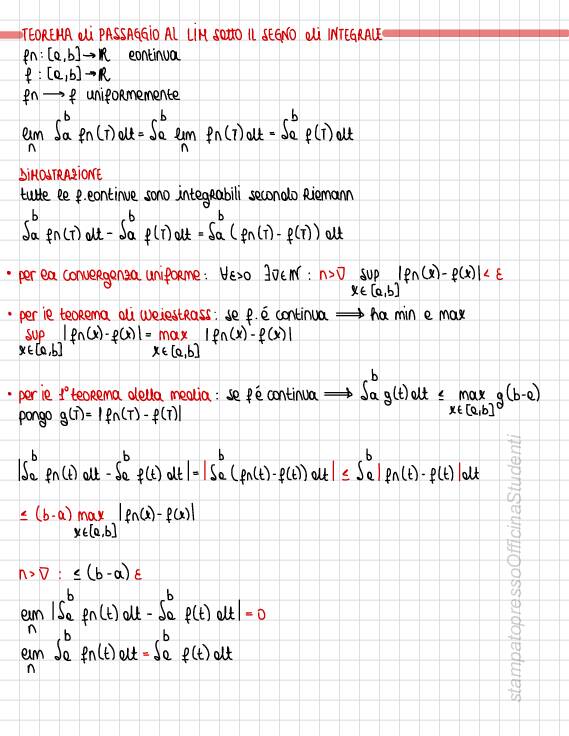 TEOREMA di PASSAGGIO AL LIM sotto IL SEGNO di INTEGRALE
fn: [a,b] → ℝ continua
f: [a,b] → ℝ
fn → f uniformemente
lim_n ∫_a^b fn(T) dt = ∫_a^b lim_n fn(T) dt = ∫_a^b f(T) dt
DIMOSTRAZIONE
tutte le f. continue sono integrabili secondo Riemann
∫_a^b fn(T) dt - ∫_a^b f(T) dt = ∫_a^b (fn(T) - f(T)) dt
• per la convergenza uniforme: ∀ε>0 ∃ν∈ℕ : n>ν sup_{x∈[a,b]} |fn(x) - f(x)| < ε
• per il teorema di Weiestrass: se f. é continua ⟹ ha min e max
sup_{x∈[a,b]} |fn(x) - f(x)| = max_{x∈[a,b]} |fn(x) - f(x)|
• per il 1° teorema della media: se f é continua ⟹ ∫_a^b g(t) dt ≤ max_{x∈[a,b]} g (b-a)
pongo g(T) = |fn(T) - f(T)|
|∫_a^b fn(t) dt - ∫_a^b f(t) dt| = |∫_a^b (fn(t) - f(t)) dt| ≤ ∫_a^b |fn(t) - f(t)| dt
≤ (b-a) max_{x∈[a,b]} |fn(x) - f(x)|
n>ν : ≤ (b-a) ε
lim_n |∫_a^b fn(t) dt - ∫_a^b f(t) dt| = 0
lim_n ∫_a^b fn(t) dt = ∫_a^b f(t) dt
stampatopressoOfficinaStudenti